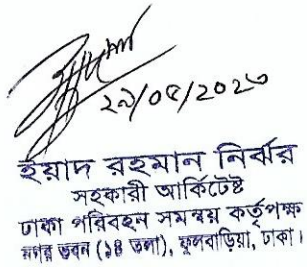 ২৯/০৫/২০২৩
ইয়াদ রহমান নির্ঝর
সহকারী আর্কিটেক্ট
ঢাকা পরিবহন সমন্বয় কর্তৃপক্ষ
নগর ভবন (১৪ তলা), ফুলবাড়িয়া, ঢাকা।